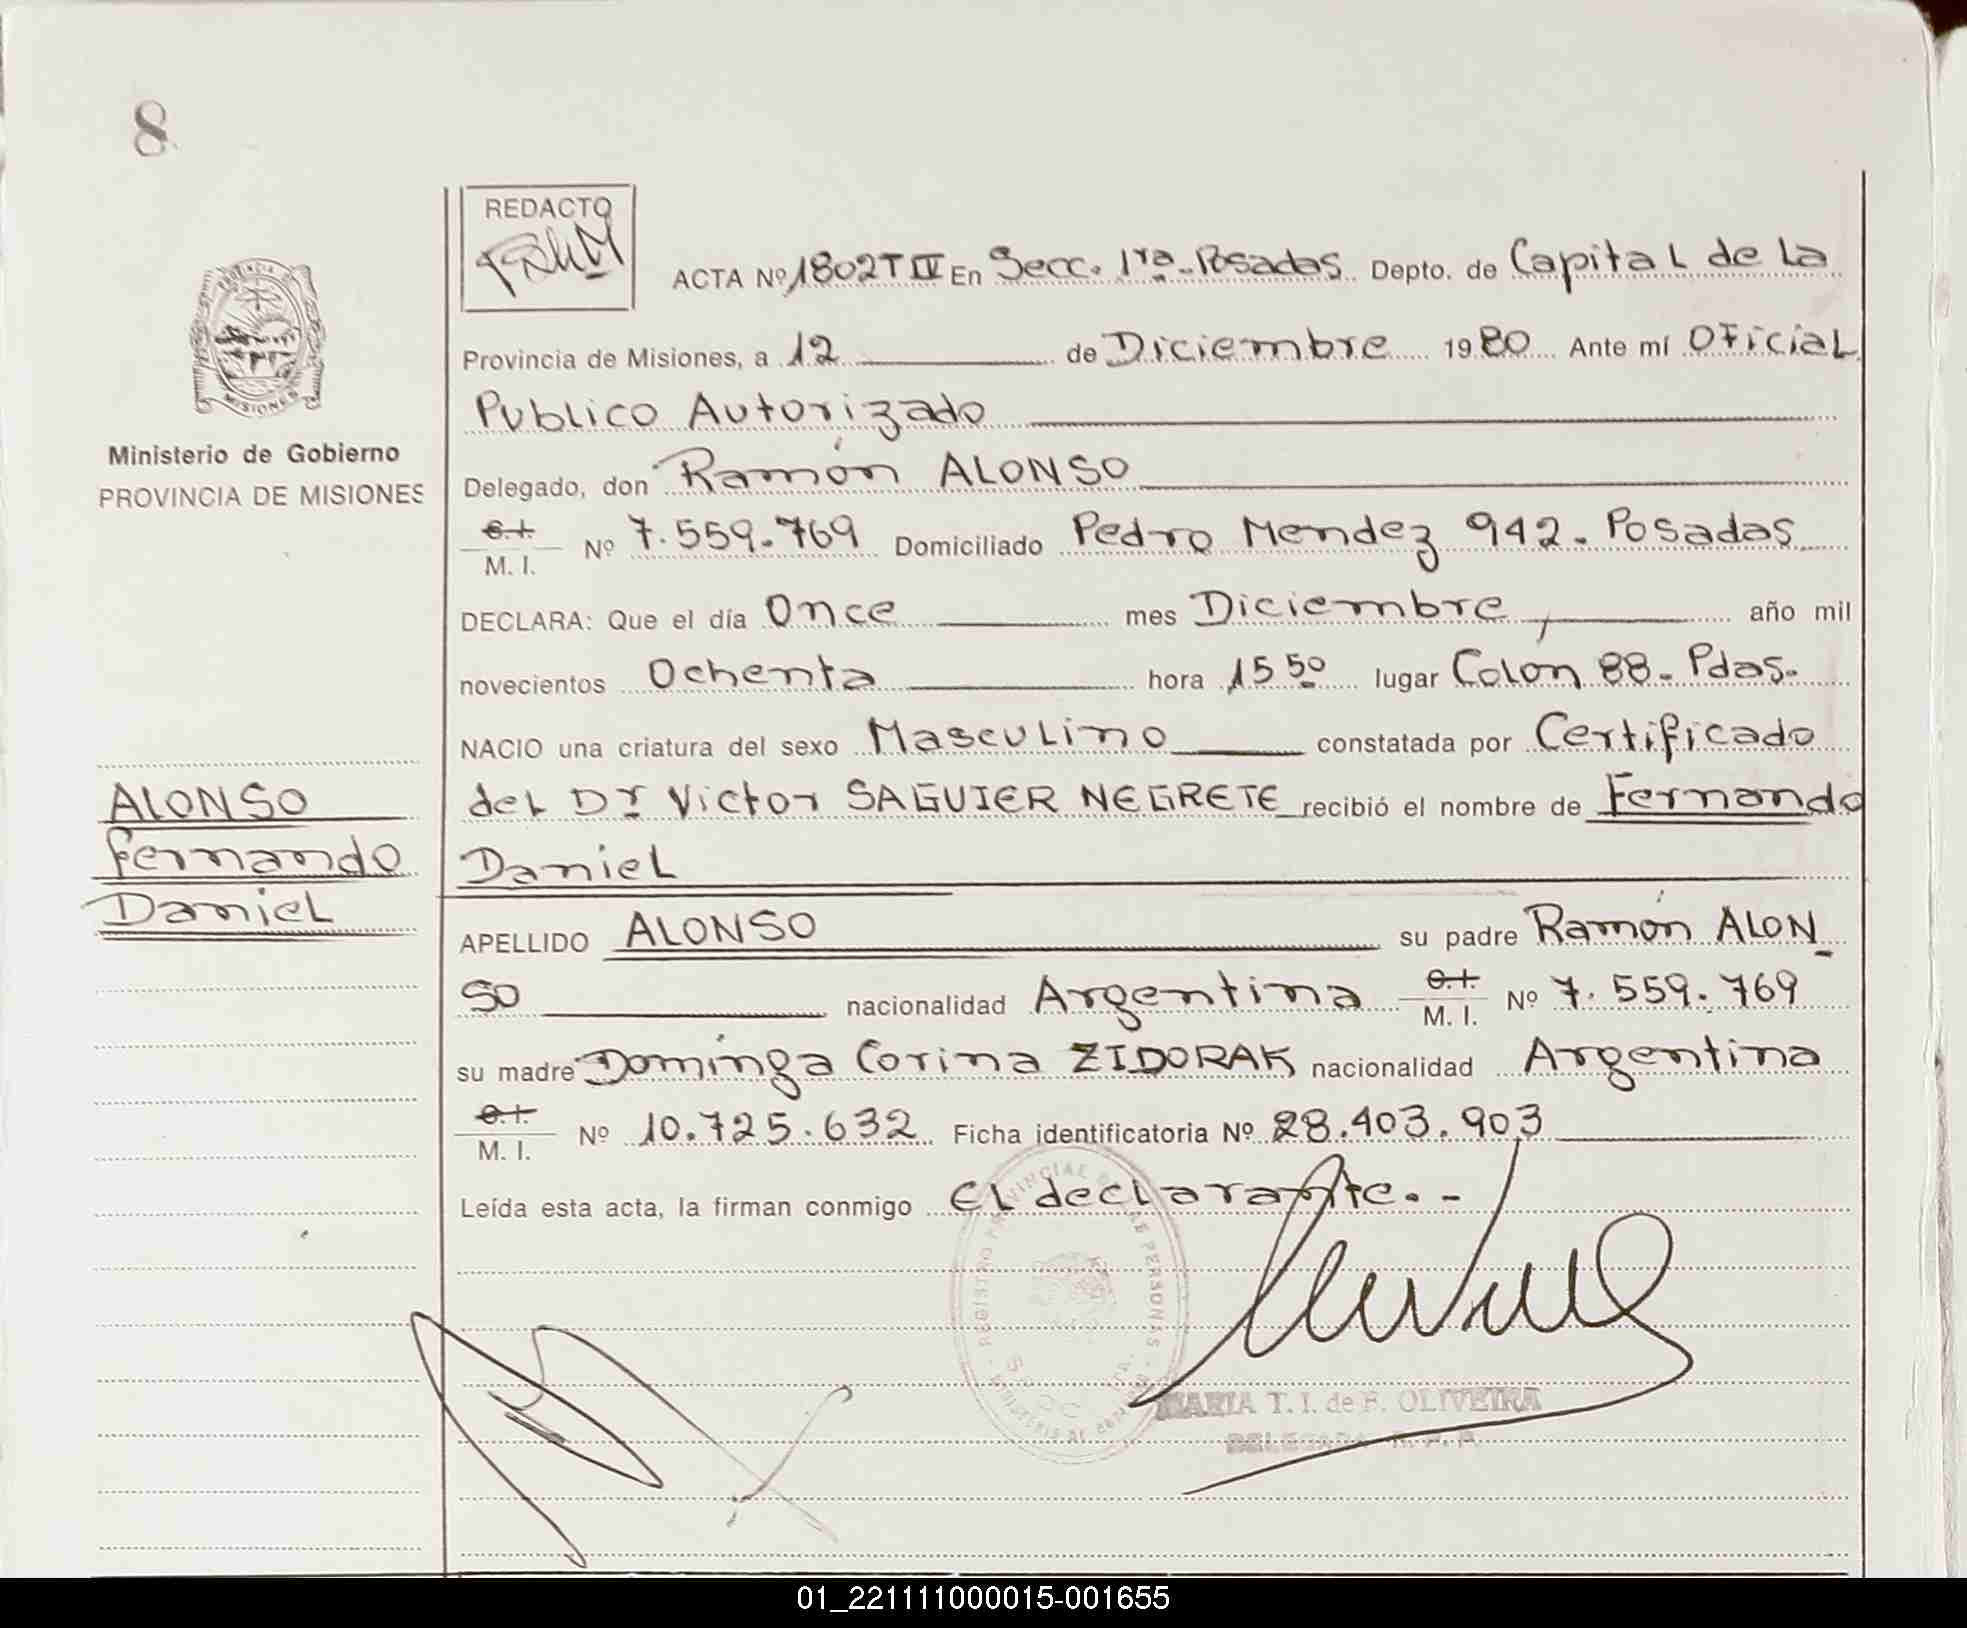 8
REDACTO
ACTA Nº 1802 T IV En Secc. 1ra. Posadas Depto. de Capital de la
Provincia de Misiones, a 12 de Diciembre 1980 Ante mí Oficial
Publico Autorizado
Ministerio de Gobierno
PROVINCIA DE MISIONES
Delegado, don Ramón ALONSO
C.I.
M. I. Nº 7.559.769 Domiciliado Pedro Mendez 942. Posadas
DECLARA: Que el día Once mes Diciembre año mil
novecientos Ochenta hora 15 50 lugar Colón 88. Pdas.
NACIO una criatura del sexo Masculino constatada por Certificado
del Dr Victor SAGUIER NEGRETE recibió el nombre de Fernando
Daniel
ALONSO
Fernando
Daniel
APELLIDO ALONSO su padre Ramón ALON
SO nacionalidad Argentina C.I. M. I. Nº 7.559.769
su madre Dominga Corina ZIDORAK nacionalidad Argentina
C.I.
M. I. Nº 10.725.632 Ficha identificatoria Nº 28.403.903
Leída esta acta, la firman conmigo El declarante.-
MARIA T. I. de F. OLIVEIRA
DELEGADA R. P. P.
01_221111000015-001655